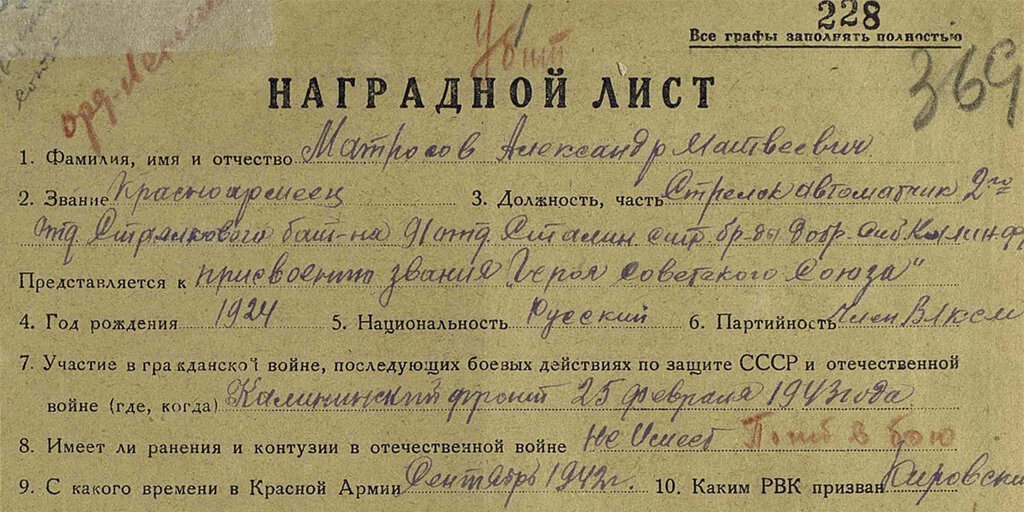 228
Все графы заполнять полностью
Убит
369
орд. Ленина
союза
НАГРАДНОЙ ЛИСТ
1. Фамилия, имя и отчество Матросов Александр Матвеевич
2. Звание Красноармеец 3. Должность, часть Стрелок автоматчик 2го
отд. Стрелкового бат-на 91 отд. Сталин бр-ды добр. Калин ф
Представляется к присвоению звания Героя Советского Союза"
4. Год рождения 1924 5. Национальность Русский 6. Партийность Член ВЛКСМ
7. Участие в гражданской войне, последующих боевых действиях по защите СССР и отечественной
войне (где, когда) Калининский фронт 25 февраля 1943 года
8. Имеет ли ранения и контузии в отечественной войне Не имеет Погиб в бою
9. С какого времени в Красной Армии Сентябрь 1942 г. 10. Каким РВК призван Кировски